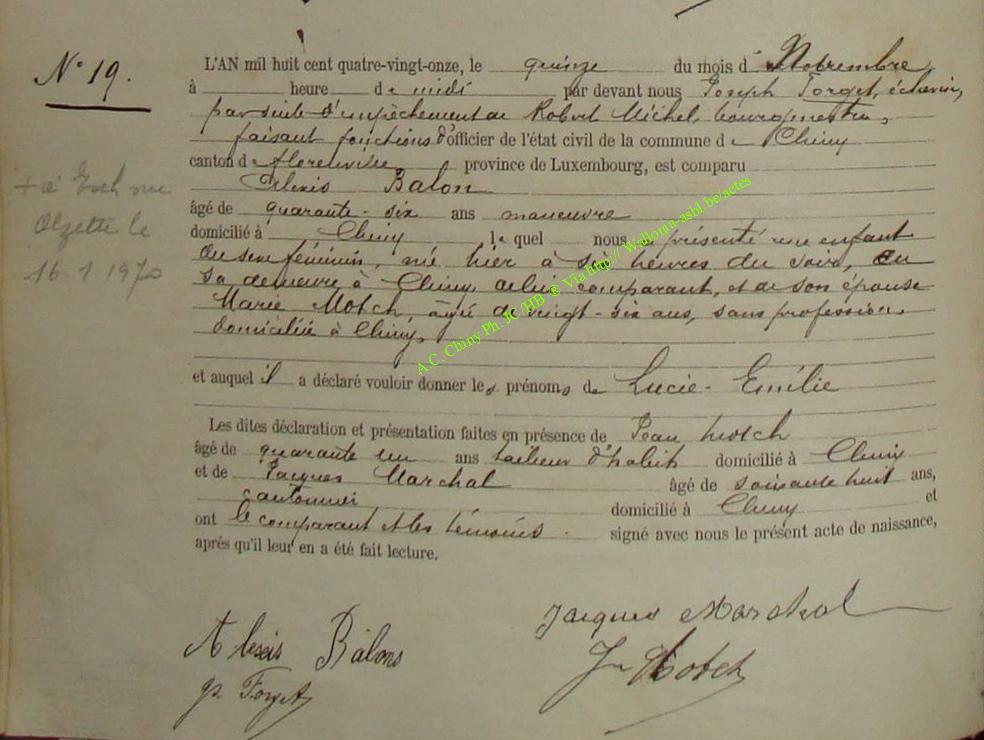 N° 19.
L'AN mil huit cent quatre-vingt-onze, le quinze du mois d Novembre
à heure de midi par devant nous Joseph Forget, échevin,
par suite d'empèchement de Robert Michel, bourgmestre,
faisant fonctions d'officier de l'état civil de la commune de Chiny
canton de Florenville province de Luxembourg, est comparu
Alexis Balon
âgé de quarante-six ans manœuvre
domicilié à Chiny lequel nous a présenté une enfant
du sexe féminin, née hier à six heures du soir, en
sa demeure à Chiny, de lui comparant, et de son épouse
Marie Motch, âgée de vingt-six ans, sans profession,
domiciliée à Chiny,
et auquel il a déclaré vouloir donner les prénoms de Lucie-Emélie
Les dites déclaration et présentation faites en présence de Jean Motch
âgé de quarante un ans tailleur d'habits domicilié à Chiny
et de Jacques Marchal âgé de soixante huit ans,
cantonnier domicilié à Chiny et
ont le comparant et les témoins signé avec nous le présent acte de naissance,
après qu'il leur en a été fait lecture.
+ à Esch sur
Alzette le
16.1.1970
A.C. Chiny Ph. JC /HB ® Via http:// Wallonia-asbl.be/actes
Jacques Marchal
Alexis Balons
Jn Motch
Forget